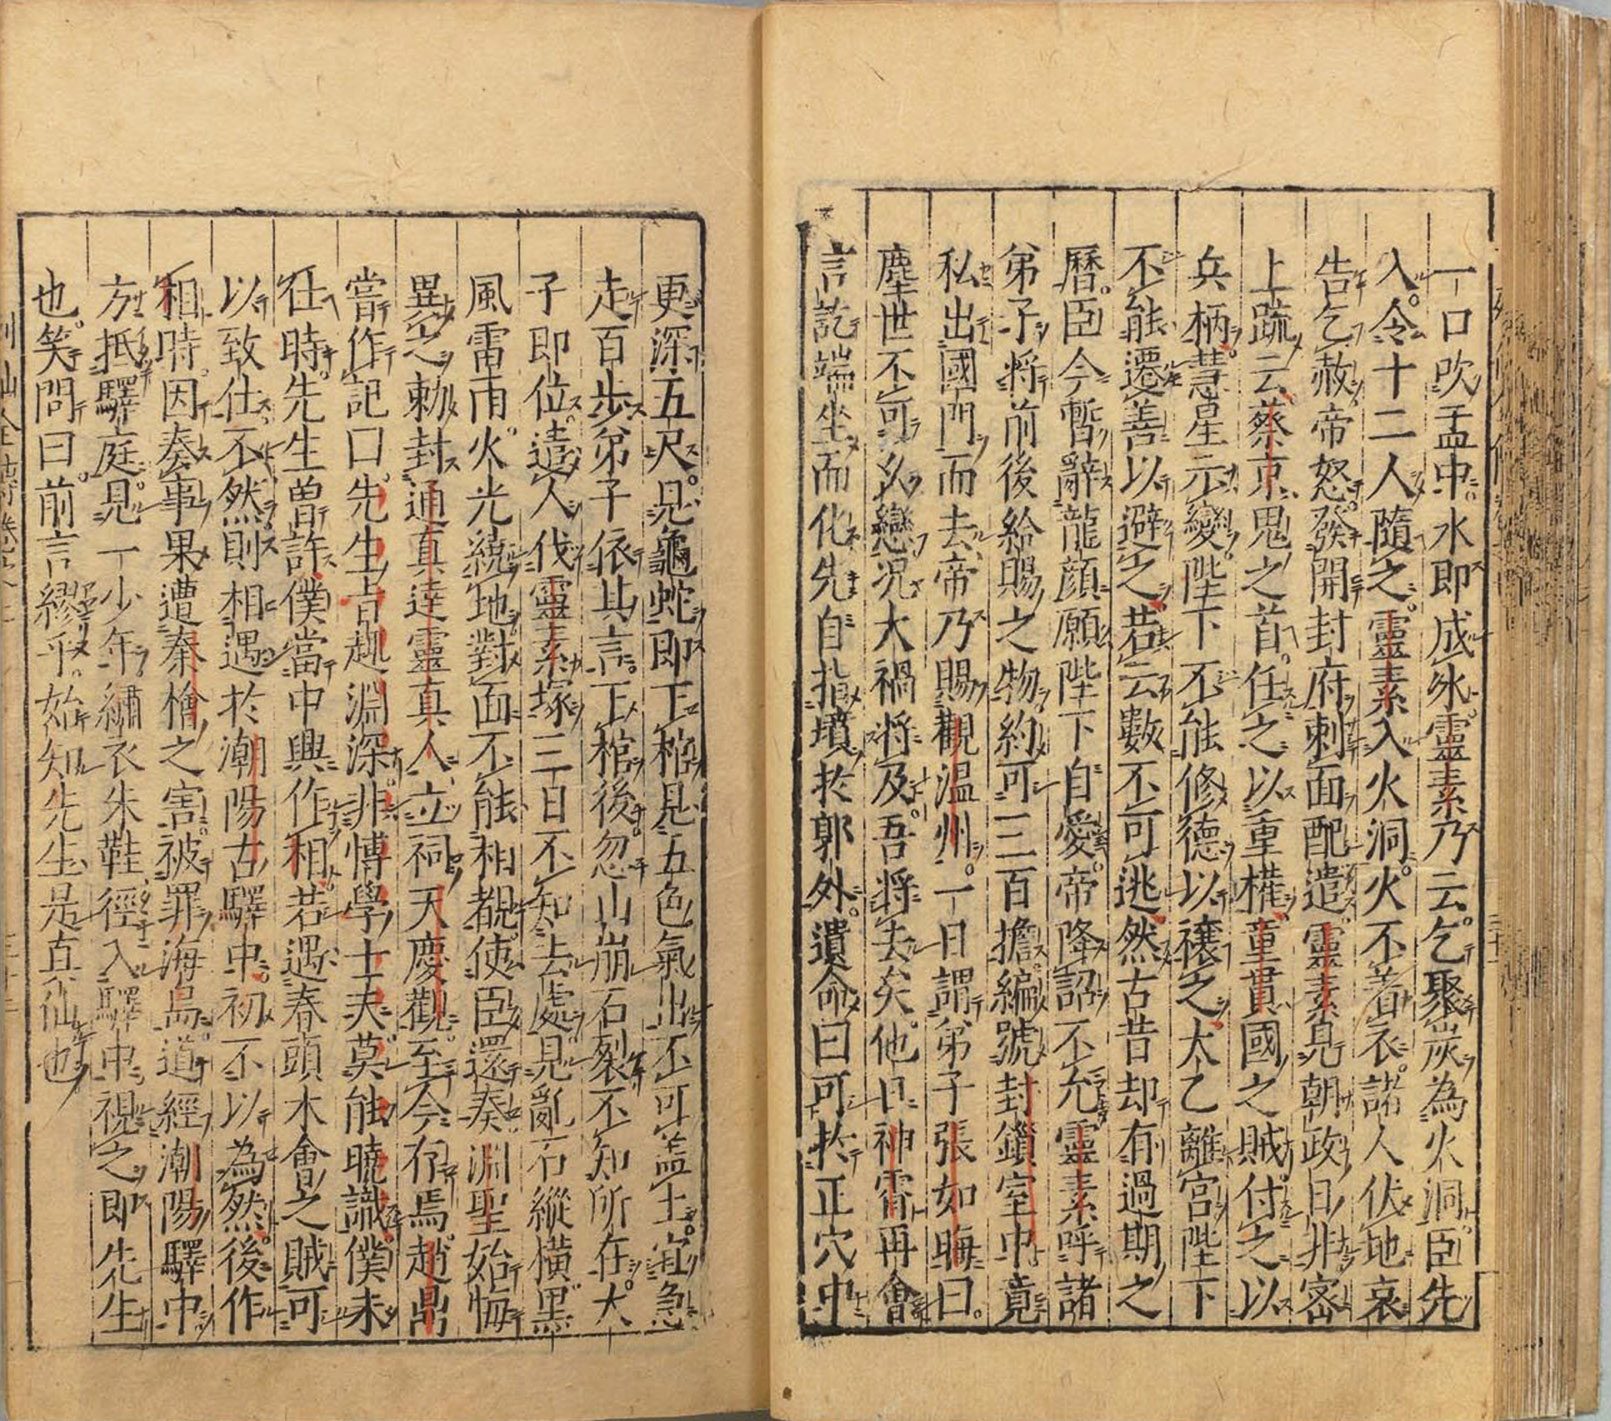 一口吹盂中水即成氷靈素乃云乞聚炭為火洞臣先
入令十二人隨之靈素入火洞火不着衣諸人伏地哀
告乞赦帝怒發開封府刺面配遣靈素見朝政日非密
上疏云蔡京鬼之首任之以重權童貫國之賊付之以
兵柄彗星示變陛下不能修德以禳之太乙離宮陛下
不能遷善以避之若云數不可逃然古昔却有過期之
曆臣今暫辭龍顏願陛下自愛帝降詔不允靈素呼諸
弟子將前後給賜之物約可三百擔編號封鎖室中竟
私出國門而去帝乃賜觀温州一日謂弟子張如晦曰
塵世不可久戀况大禍將及吾將去矣他日神霄再會
言訖端坐而化先自指墳於郭外遺命曰可於正穴中
更深五尺見龜蛇即下棺見五色氣出不可盖土宜急
走百步弟子依其言下棺後忽山崩石裂不知所在太
子即位遠人伐靈素塚三日不知去處見亂石縱橫黒
風雷雨火光繞地對面不能相覩使臣還奏淵聖始悔
異之勅封通真達靈真人立祠天慶觀至今存焉趙鼎
嘗作記曰先生言趣淵深非博學士夫莫能曉識僕未
仕時先生曽許僕當中興作相若遇春頭木會之賊可
以致仕不然則相遇於潮陽古驛中初不以為然後作
相時因奏事果遭秦檜之害被罪海島道經潮陽驛中
方抵驛庭見一少年繡衣朱鞋徑入驛中視之即先生
也笑問曰前言繆乎始知先生是真仙也